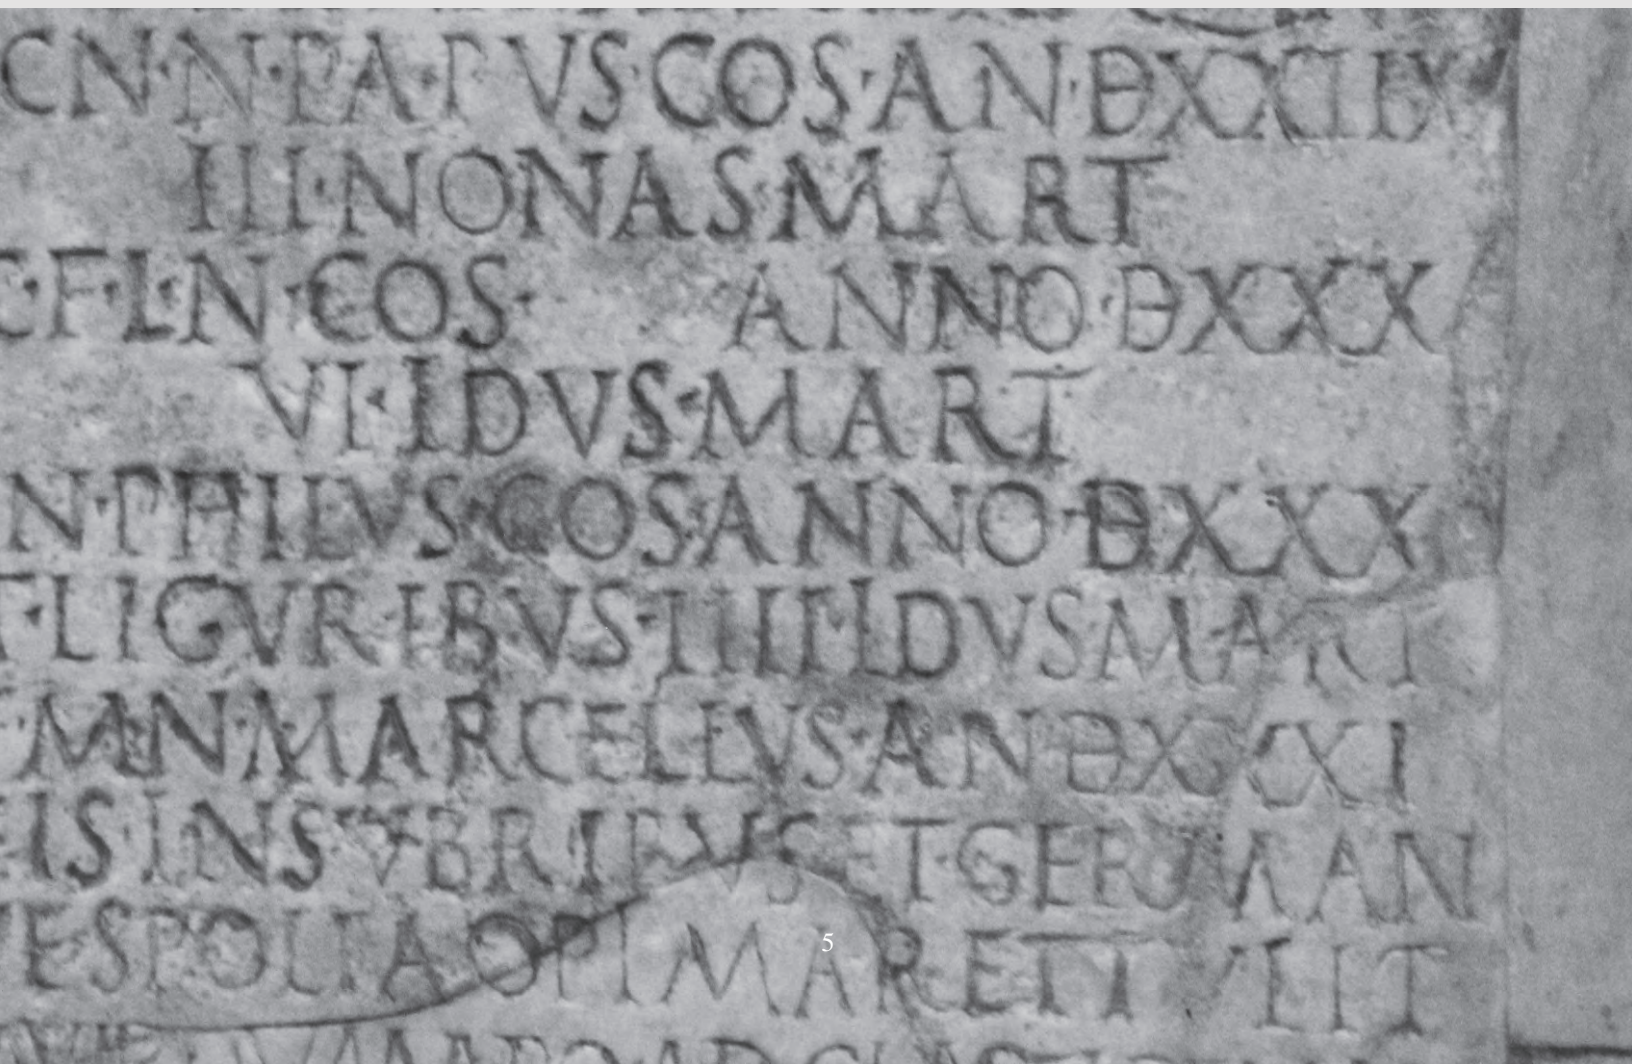 CN·N·P·APVS·COS·AN·DXXIIX
III·NONAS·MART
C·F·L·N·COS· ANNO·DXXX
VI·IDVS·MART
N·PHILVS·COS·ANNO·DXXX
LIGVRIBVS·IIII·IDVS·MART
M·N·MARCELLVS·AN·DXXXI
INSVBRIBVS·ET·GERMAN
SPOLIA·OPIMA·RETTVLIT
5